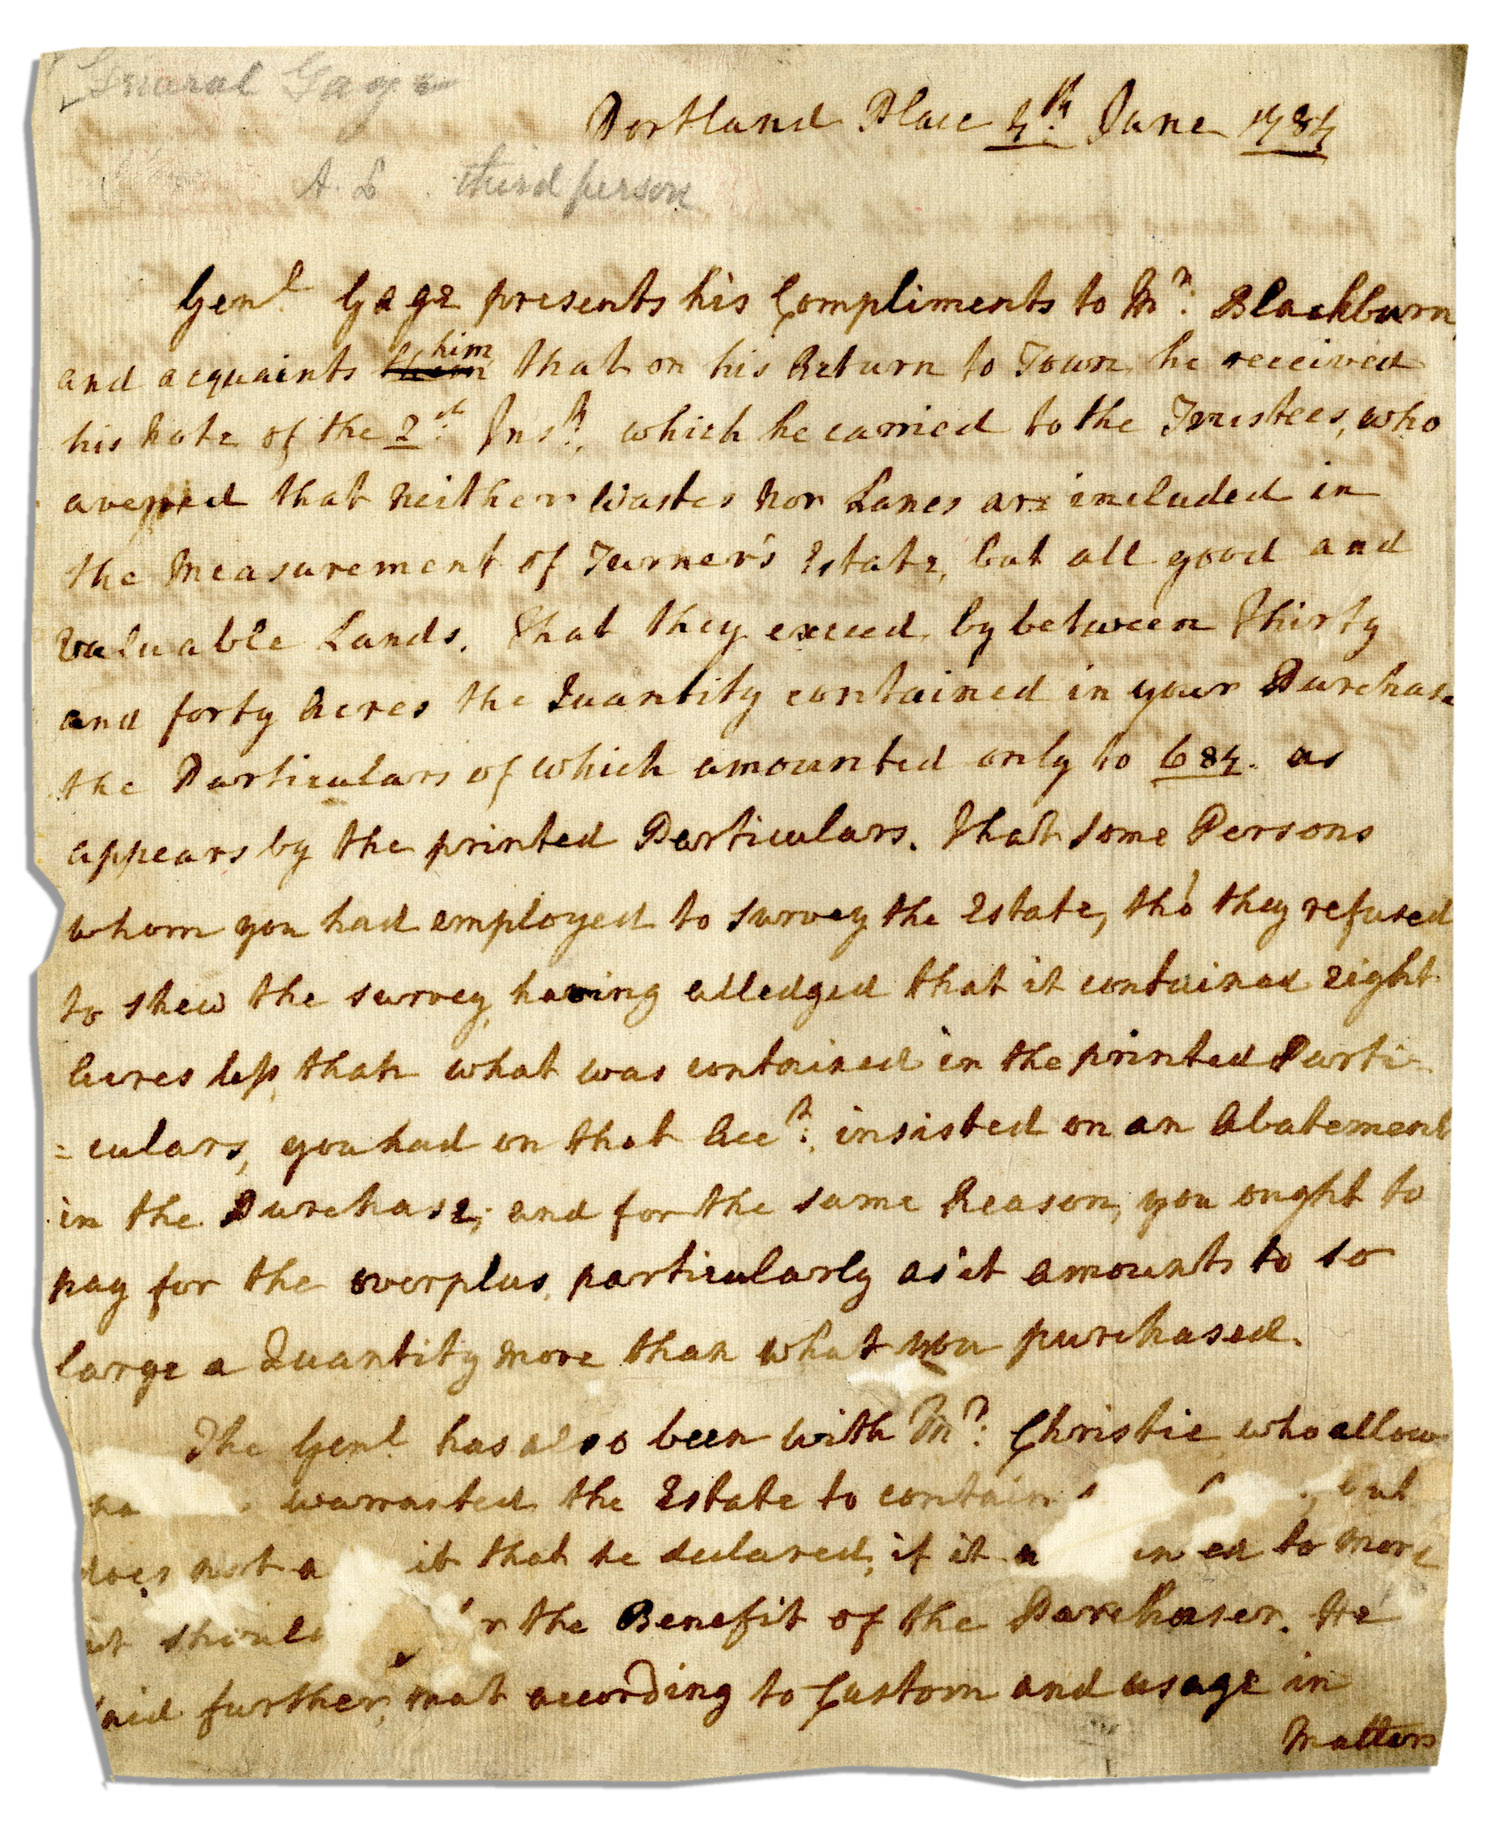 General Gage
Portland Place 4th June 1784
A. L. third person
Genl. Gage presents his Compliments to Mr. Blackburn,
and acquaints them him that on his Return to Town he received
his Note of the 2d. Inst. which he carried to the Trustees, who
averred that Neither Wastes Nor Lanes are included in
the Measurement of Turner's Estate, but all good and
Valuable Lands. That they exceed, by between Thirty
and forty Acres the Quantity contained in your Purchase
the Particulars of which amounted only to 684. as
appears by the printed Particulars. That some Persons
whom you had employed to survey the Estate, tho' they refused
to shew the survey, having alledged that it contained eight
Acres less than what was contained in the printed Parti-
=culars, you had on that Acct. insisted on an Abatement
in the Purchase; and for the same Reason, you ought to
pay for the overplus, particularly as it amounts to so
large a Quantity more than what you purchased.
The Genl. has also been with Mr. Christie, who allow
warranted the Estate to contain but
does not that he declared, if it to More
it should the Benefit of the Purchaser. He
said further, that according to Custom and usage in
Matters